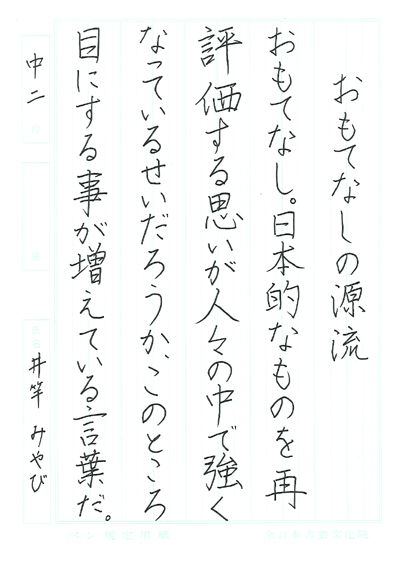 おもてなしの源流
おもてなし。日本的なものを再
評価する思いが人々の中で強く
なっているせいだろうか、このところ
目にする事が増えている言葉だ。
中二
井竿 みやび